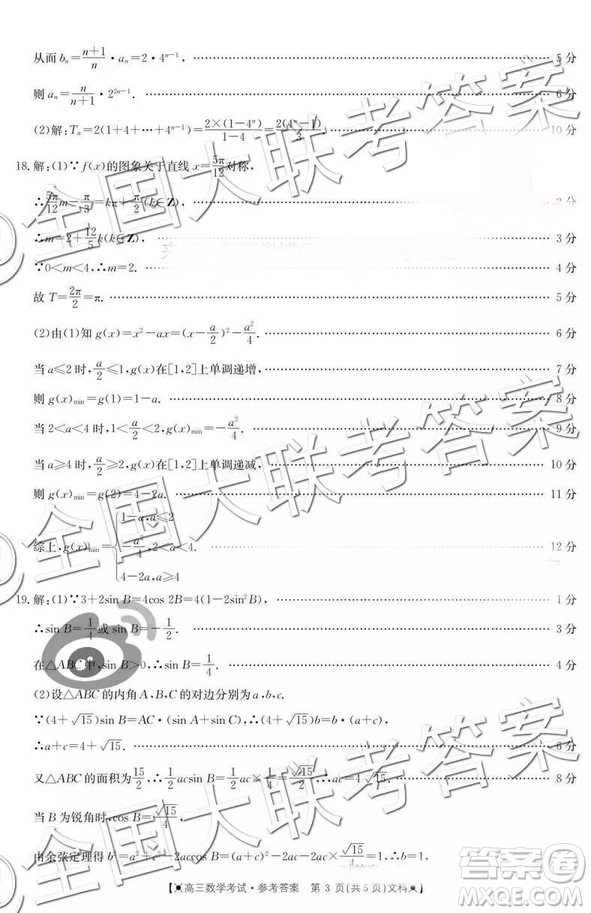 从而 bₙ=(n+1)/n·aₙ=2·4ⁿ⁻¹ 5分
则 aₙ=n/(n+1)·2²ⁿ⁻¹. 6分
(2)解:Tₙ=2(1+4+…+4ⁿ⁻¹)=2×(1-4ⁿ)/(1-4)=2(4ⁿ-1)/3 10分
18.解:(1)∵f(x)的图象关于直线 x=5π/12 对称,
∴ π/3=kπ+π/2(k∈Z) 2分
∴m=2+12/5k(k∈Z) 3分
∵0<m<4,∴m=2. 4分
故 T=2π/2=π. 5分
(2)由(1)知 g(x)=x²-ax=(x-a/2)²-a²/4. 6分
当 a≤2 时,a/2≤1,g(x)在[1,2]上单调递增, 7分
则 g(x)min=g(1)=1-a. 8分
当 2<a<4 时,1<a/2<2,g(x)min=-a²/4. 9分
当 a≥4 时,a/2≥2,g(x)在[1,2]上单调递减, 10分
则 g(x)min=g(2)=4-2a. 11分
综上,g(x)min={1-a,a≤2 -a²/4,2<a<4 4-2a,a≥4 12分
19.解:(1)∵3+2sin B=4cos 2B=4(1-2sin²B), 1分
∴sin B=1/4 或 sin B=-1/2. 3分
在△ABC中,sin B>0,∴sin B=1/4. 4分
(2)设△ABC的内角A,B,C的对边分别为a,b,c.
∵(4+√15)sin B=AC·(sin A+sin C),∴(4+√15)b=b(a+c).
∴a+c=4+√15. 6分
又△ABC的面积为√15/2,∴1/2acsin B=1/2ac×1/4=√15/2,∴ac=4√15. 8分
当 B 为锐角时,cos B=√15/4.
由余弦定理得 b²=a²+c²-2accos B=(a+c)²-2ac-√15/2ac=1,∴b=1.
高三数学考试·参考答案 第 3 页(共 5 页)文科
全国大联考答案
全国大联考答案
全国大联考答案
答案圈
MXQE.COM